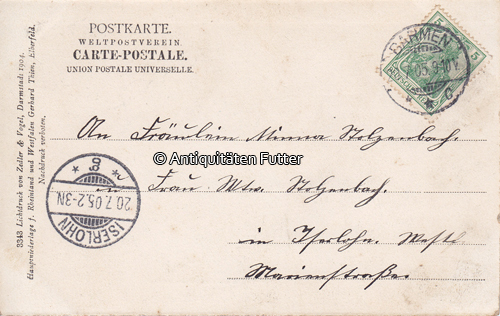 POSTKARTE.
WELTPOSTVEREIN.
CARTE-POSTALE.
UNION POSTALE UNIVERSELLE.
BARMEN
05. 9-10V.
* * c
5 5
An Fräulein Minna Stolzenbach.
© Antiquitäten Futter
in Frau Wtw. Stolzenbach.
in Iserlohn. Westf.
Marienstraße.
* g *
20.7.05.2-3N
ISERLOHN
3343 Lichtdruck von Zedler & Vogel, Darmstadt 1904.
Hauptniederlage f. Rheinland und Westfalen Gerhard Thien, Elberfeld.
Nachdruck verboten.